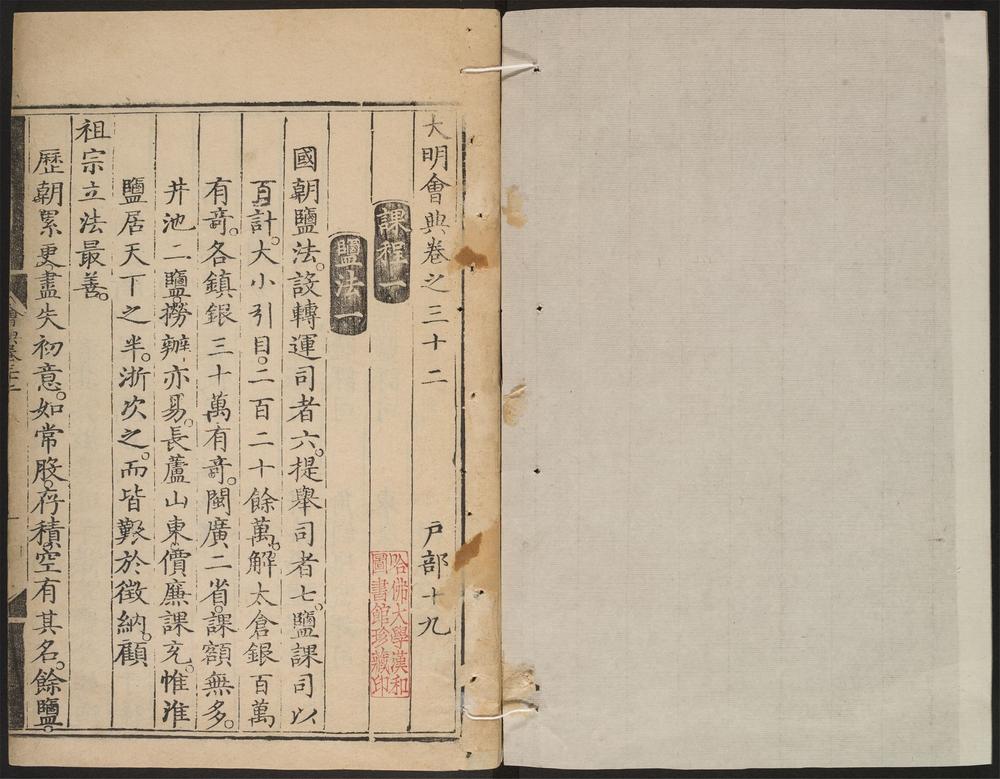 大明會典卷之三十二　戶部十九
課程一
哈佛大學漢和
圖書館珍藏印
鹽法一
國朝鹽法。設轉運司者六。提舉司者七。鹽課司以
百計。大小引目。二百二十餘萬。解太倉銀百萬
有奇。各鎮銀三十萬有奇。閩廣二省。課額無多。
井池二鹽。撈辦亦易。長蘆山東。價廉課充。惟淮
鹽居天下之半。浙次之。而皆艱於徵納。顧
祖宗立法最善。
歷朝累更。盡失初意。如常股。存積。空有其名。餘鹽。